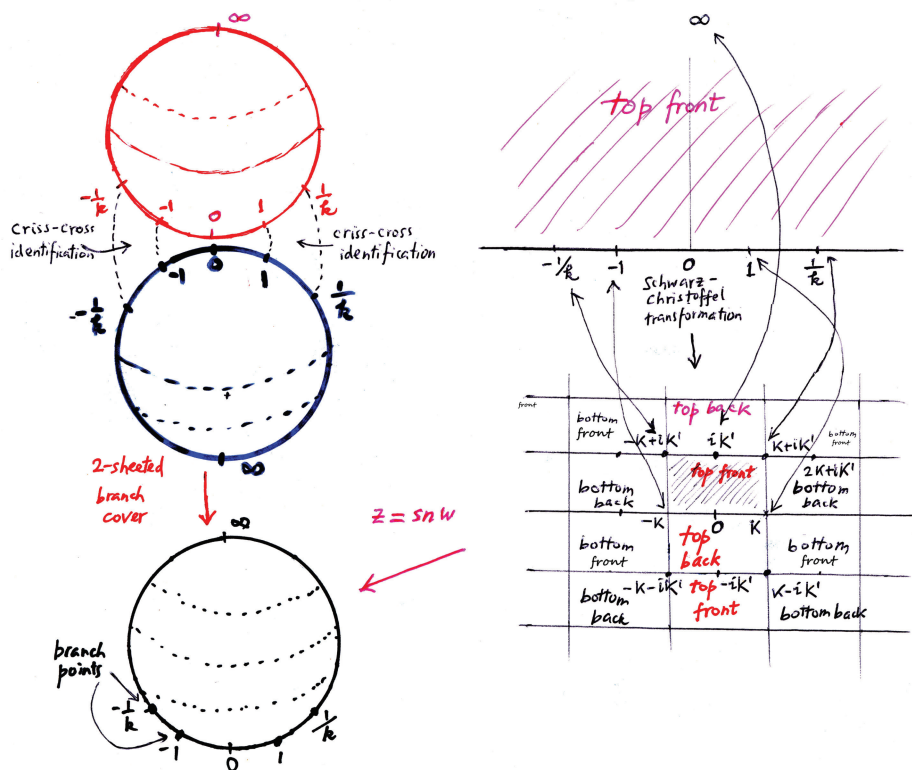 ∞
-1/k
-1
0
1
1/k
criss-cross
identification
criss-cross
identification
-1/k
-1
0
1
1/k
∞
2-sheeted
branch
cover
z = sn w
∞
branch
points
-1/k
-1
0
1
1/k
∞
top front
-1/k
-1
0
1
1/k
Schwarz-
christoffel
transformation
front
bottom
front
top back
bottom
front
-K+iK'
iK'
K+iK'
2K+iK'
bottom
back
top front
bottom
back
-K
0
K
bottom
front
top
back
bottom
front
-K-iK'
-iK'
K-iK'
bottom
back
top
front
bottom back